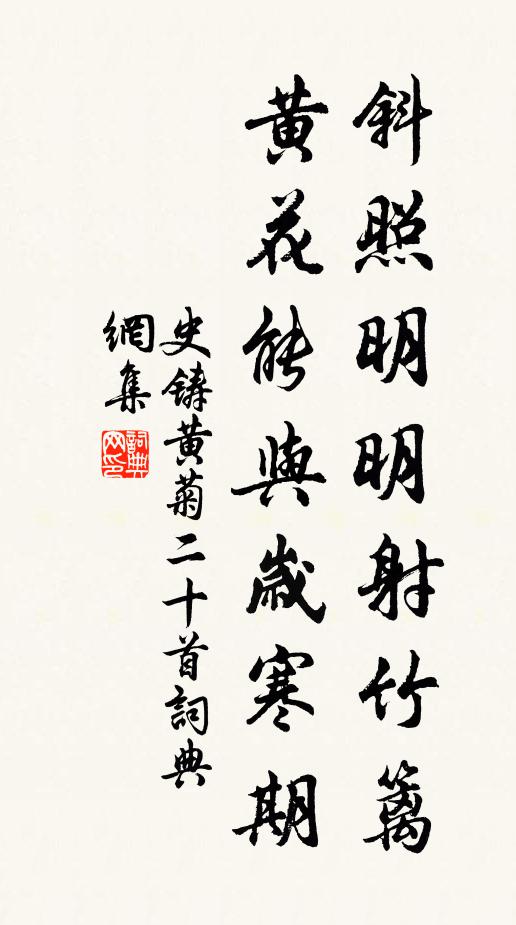 斜照明明射竹籬
黄花能與歲寒期
史鑄黄菊二十首詞典
網集
詞典網印